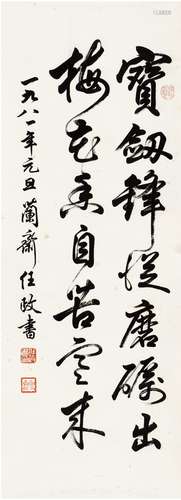 寶劔鋒從磨礪出
梅花香自苦寒來
一九八一年元旦蘭齋任政書